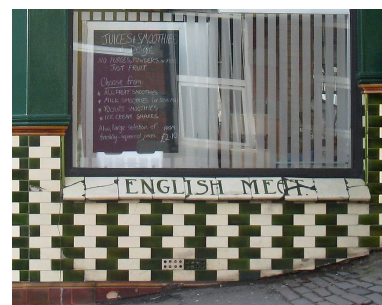 JUICES & SMOOTHIES
NO PUREES, POWDERS
JUST FRUIT
Choose from:
ALL FRUIT SMOOTHIES
MILK SMOOTHIES
YOGHURT SMOOTHIES
ICE CREAM SHAKES
Also large selection of
freshly squeezed juices
ENGLISH MEAT